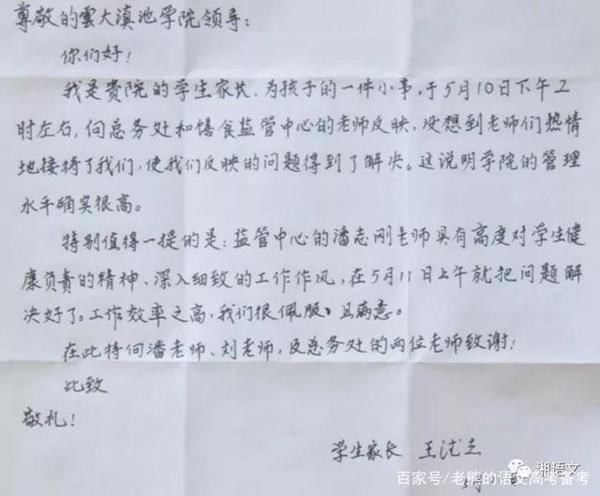 尊敬的雲大滇池学院领导:
你们好!
我是贵院的学生家长,为孩子的一件小事,于5月10日下午2
时左右,向总务处和膳食监管中心的老师反映,没想到老师们热情
地接待了我们,使我们反映的问题得到了解决。这说明学院的管理
水平确实很高。
特别值得一提的是:监管中心的潘志刚老师具有高度对学生健
康负责的精神、深入细致的工作作风,在5月11日上午就把问题解
决好了。工作效率之高,我们很佩服、且满意。
在此特向潘老师、刘老师,及总务处的两位老师致谢!
此致
敬礼!
学生家长 王
湘语文
百家号/老熊的语文高考备考